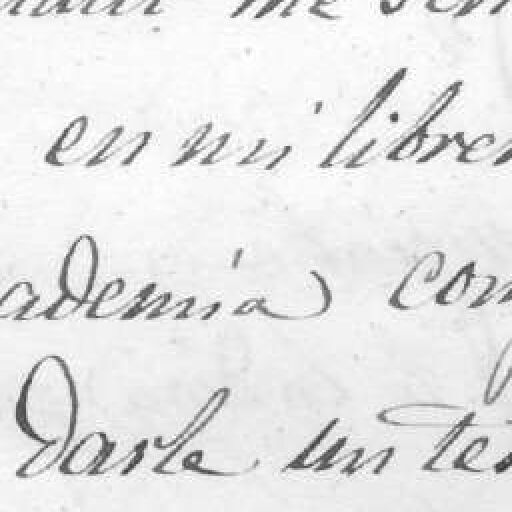 me
en mi libre
ademia com
Darle un te